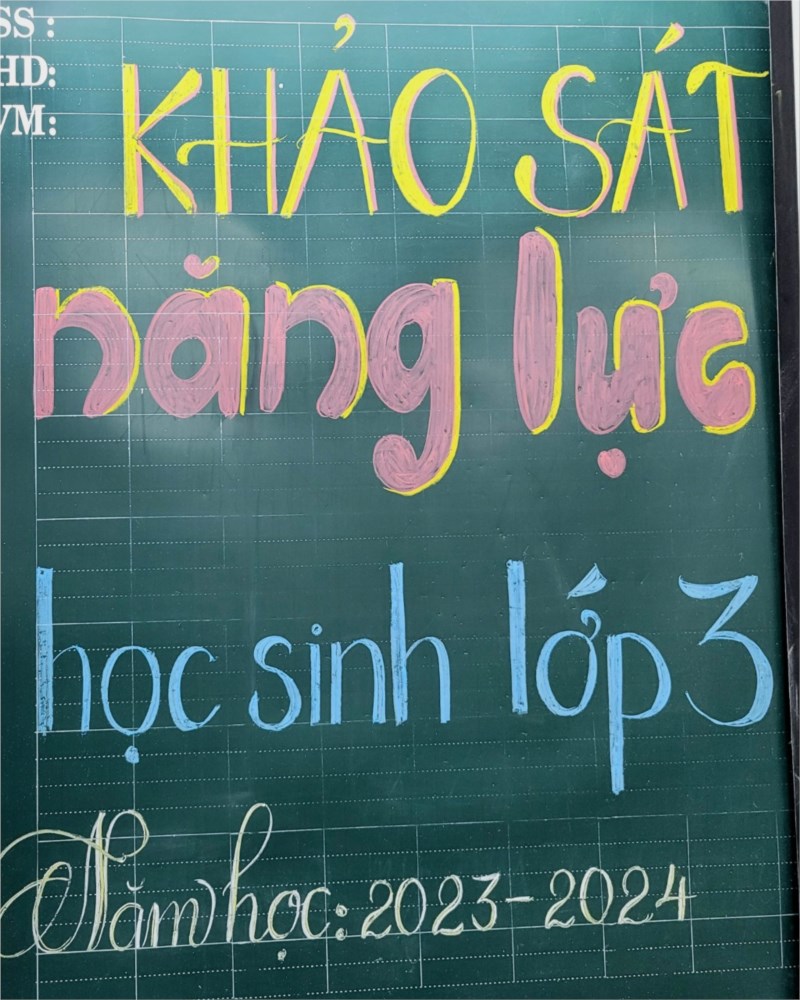 SS :
HD:
VM:
KHẢO SÁT
năng lực
học sinh lớp 3
Năm học: 2023-2024